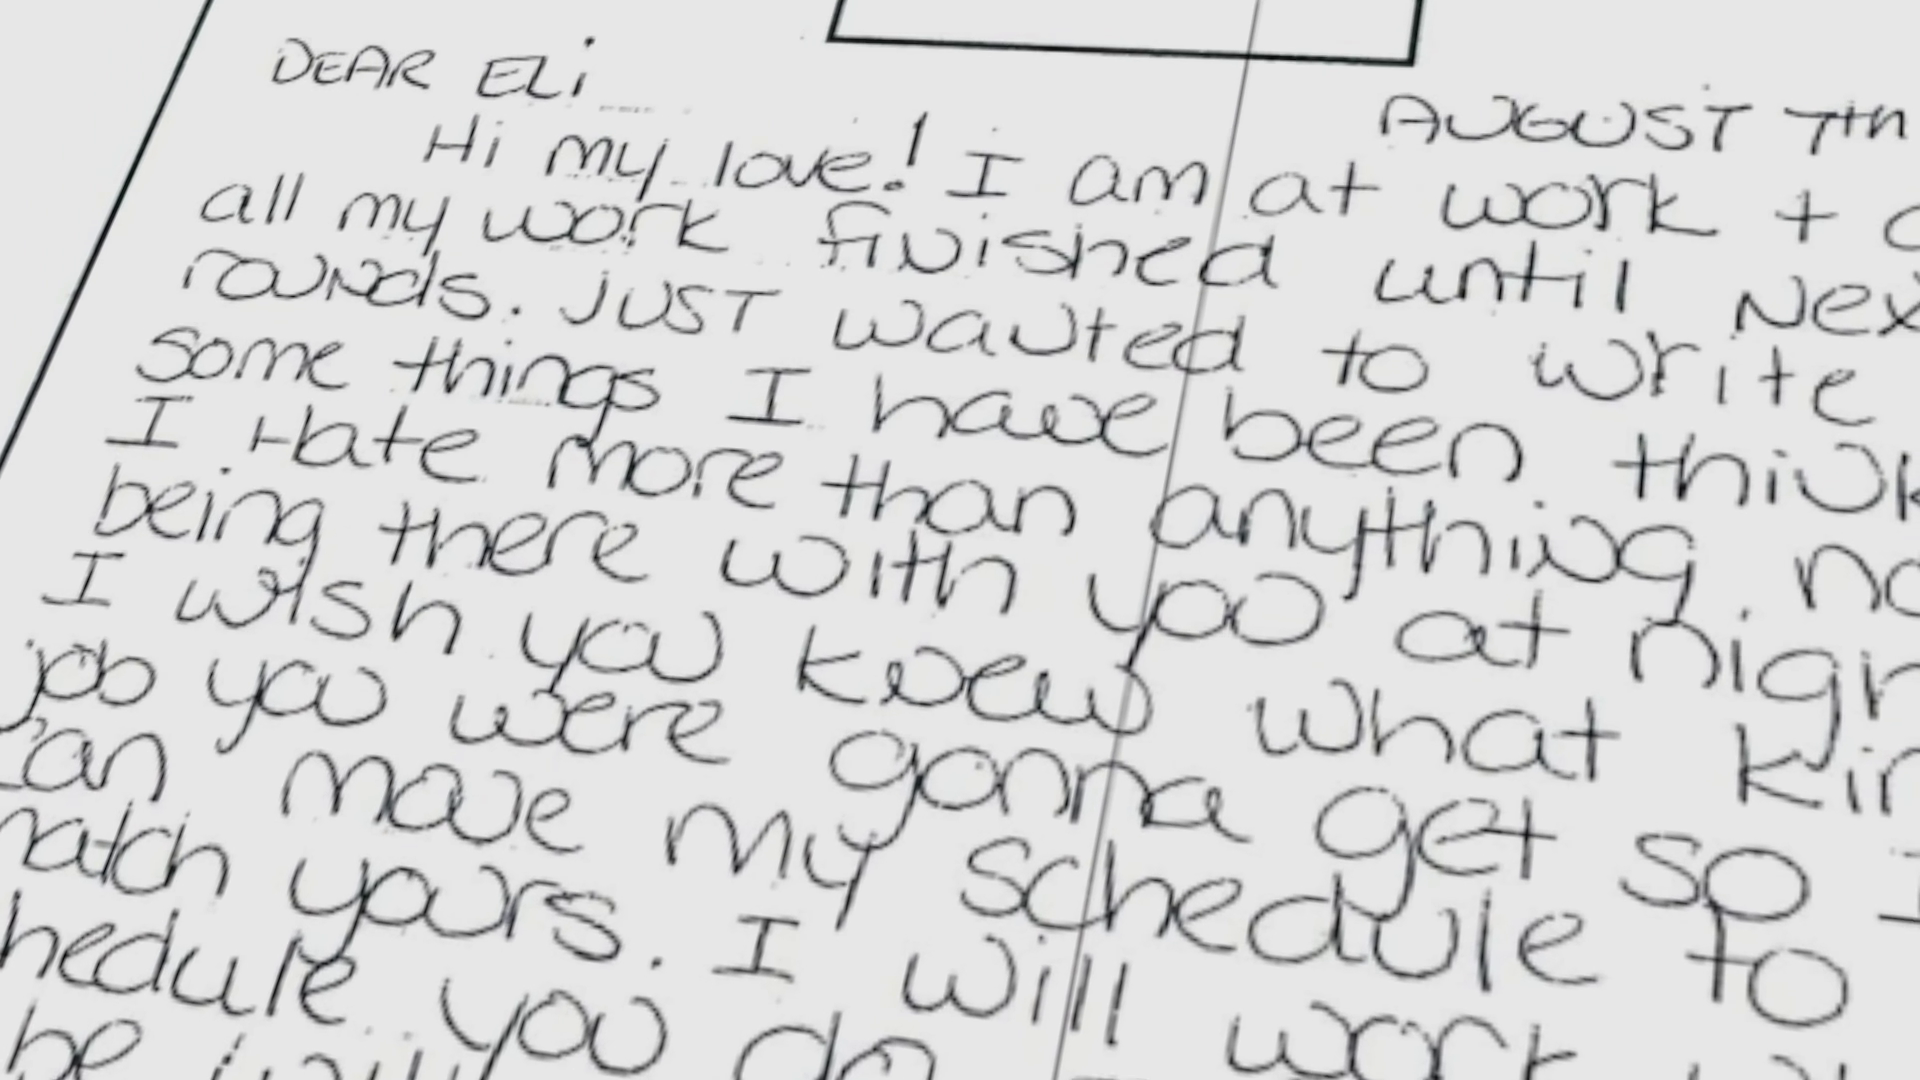 DEAR ELi
AUGUST 7th
Hi my love! I am at work +
all my work finished until Nex
rounds. JUST wanted to write
some things I have been think
I Hate more than anything no
being there with you at nigh
I wish you knew what kin
job you were gonna get so I
can move my schedule to
match yours. I will work
hedule you do
be will